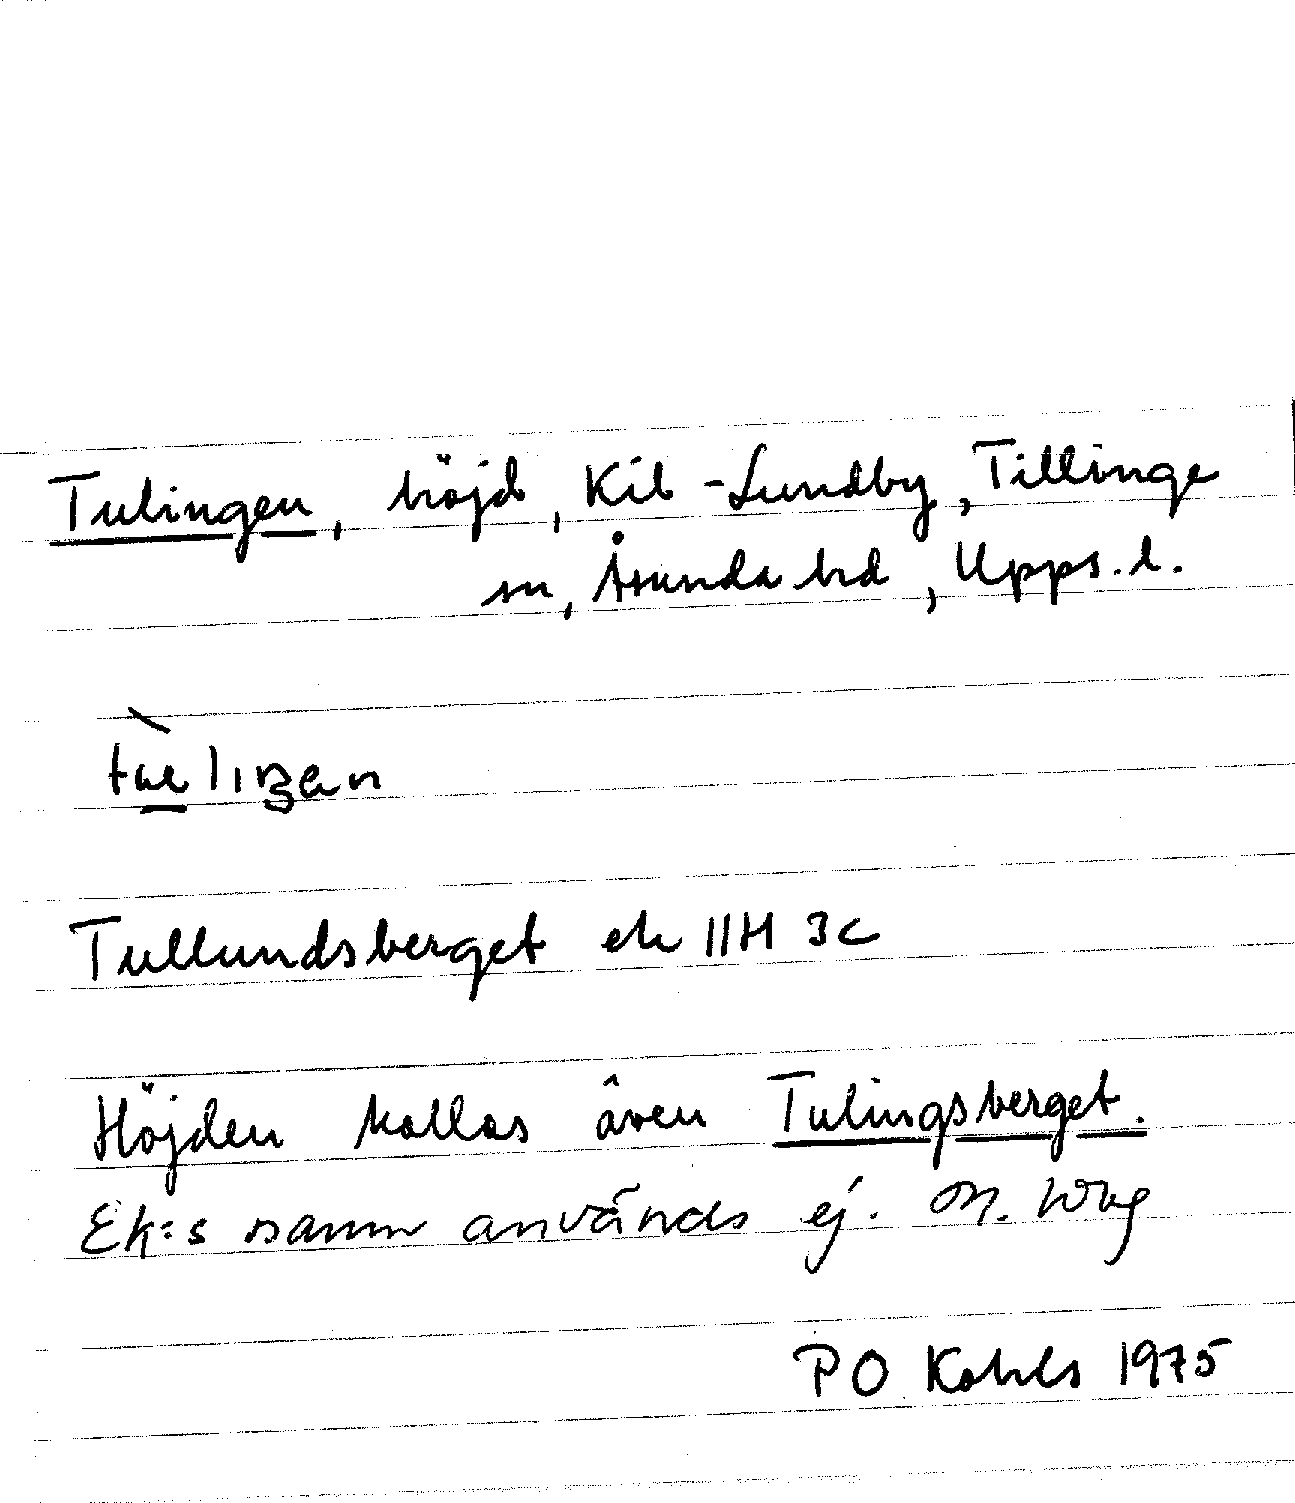 Tulingen, höjd, Kil-Lundby, Tillinge
sn, Åsunda hd, Upps. l.
Tullundsberget ek 11H 3c
Höjden kallas även Tulingsberget.
Ek:s namn används ej.
PO Kahls 1975